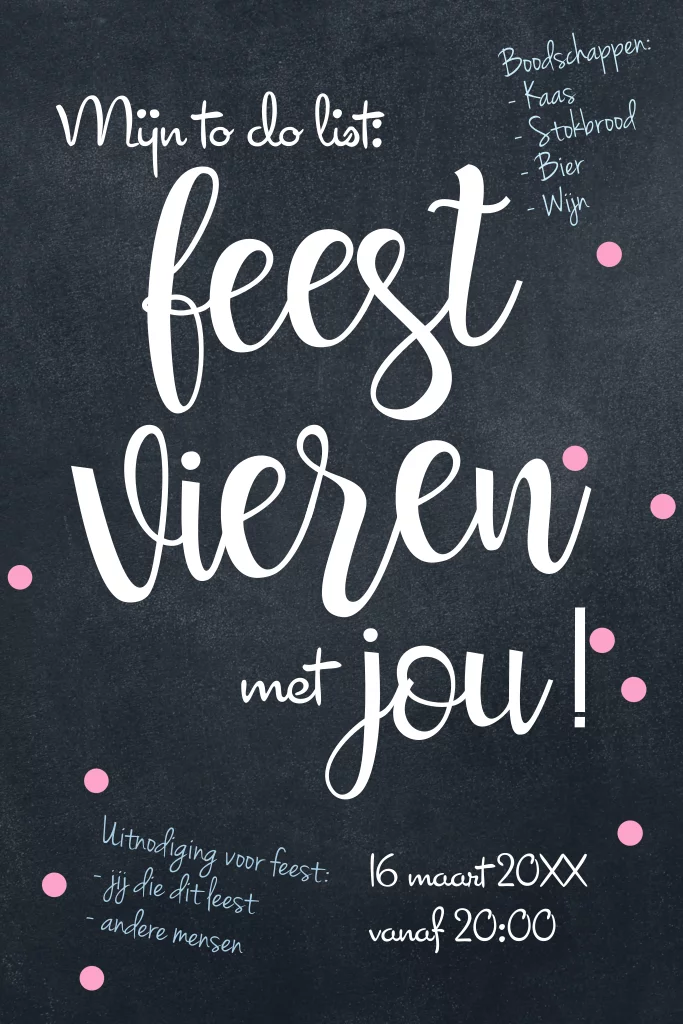 Boodschappen:
- Kaas
- Stokbrood
- Bier
- Wijn
Mijn to do list:
feest
vieren
met jou!
Uitnodiging voor feest:
- jij die dit leest
- andere mensen
16 maart 20XX
vanaf 20:00